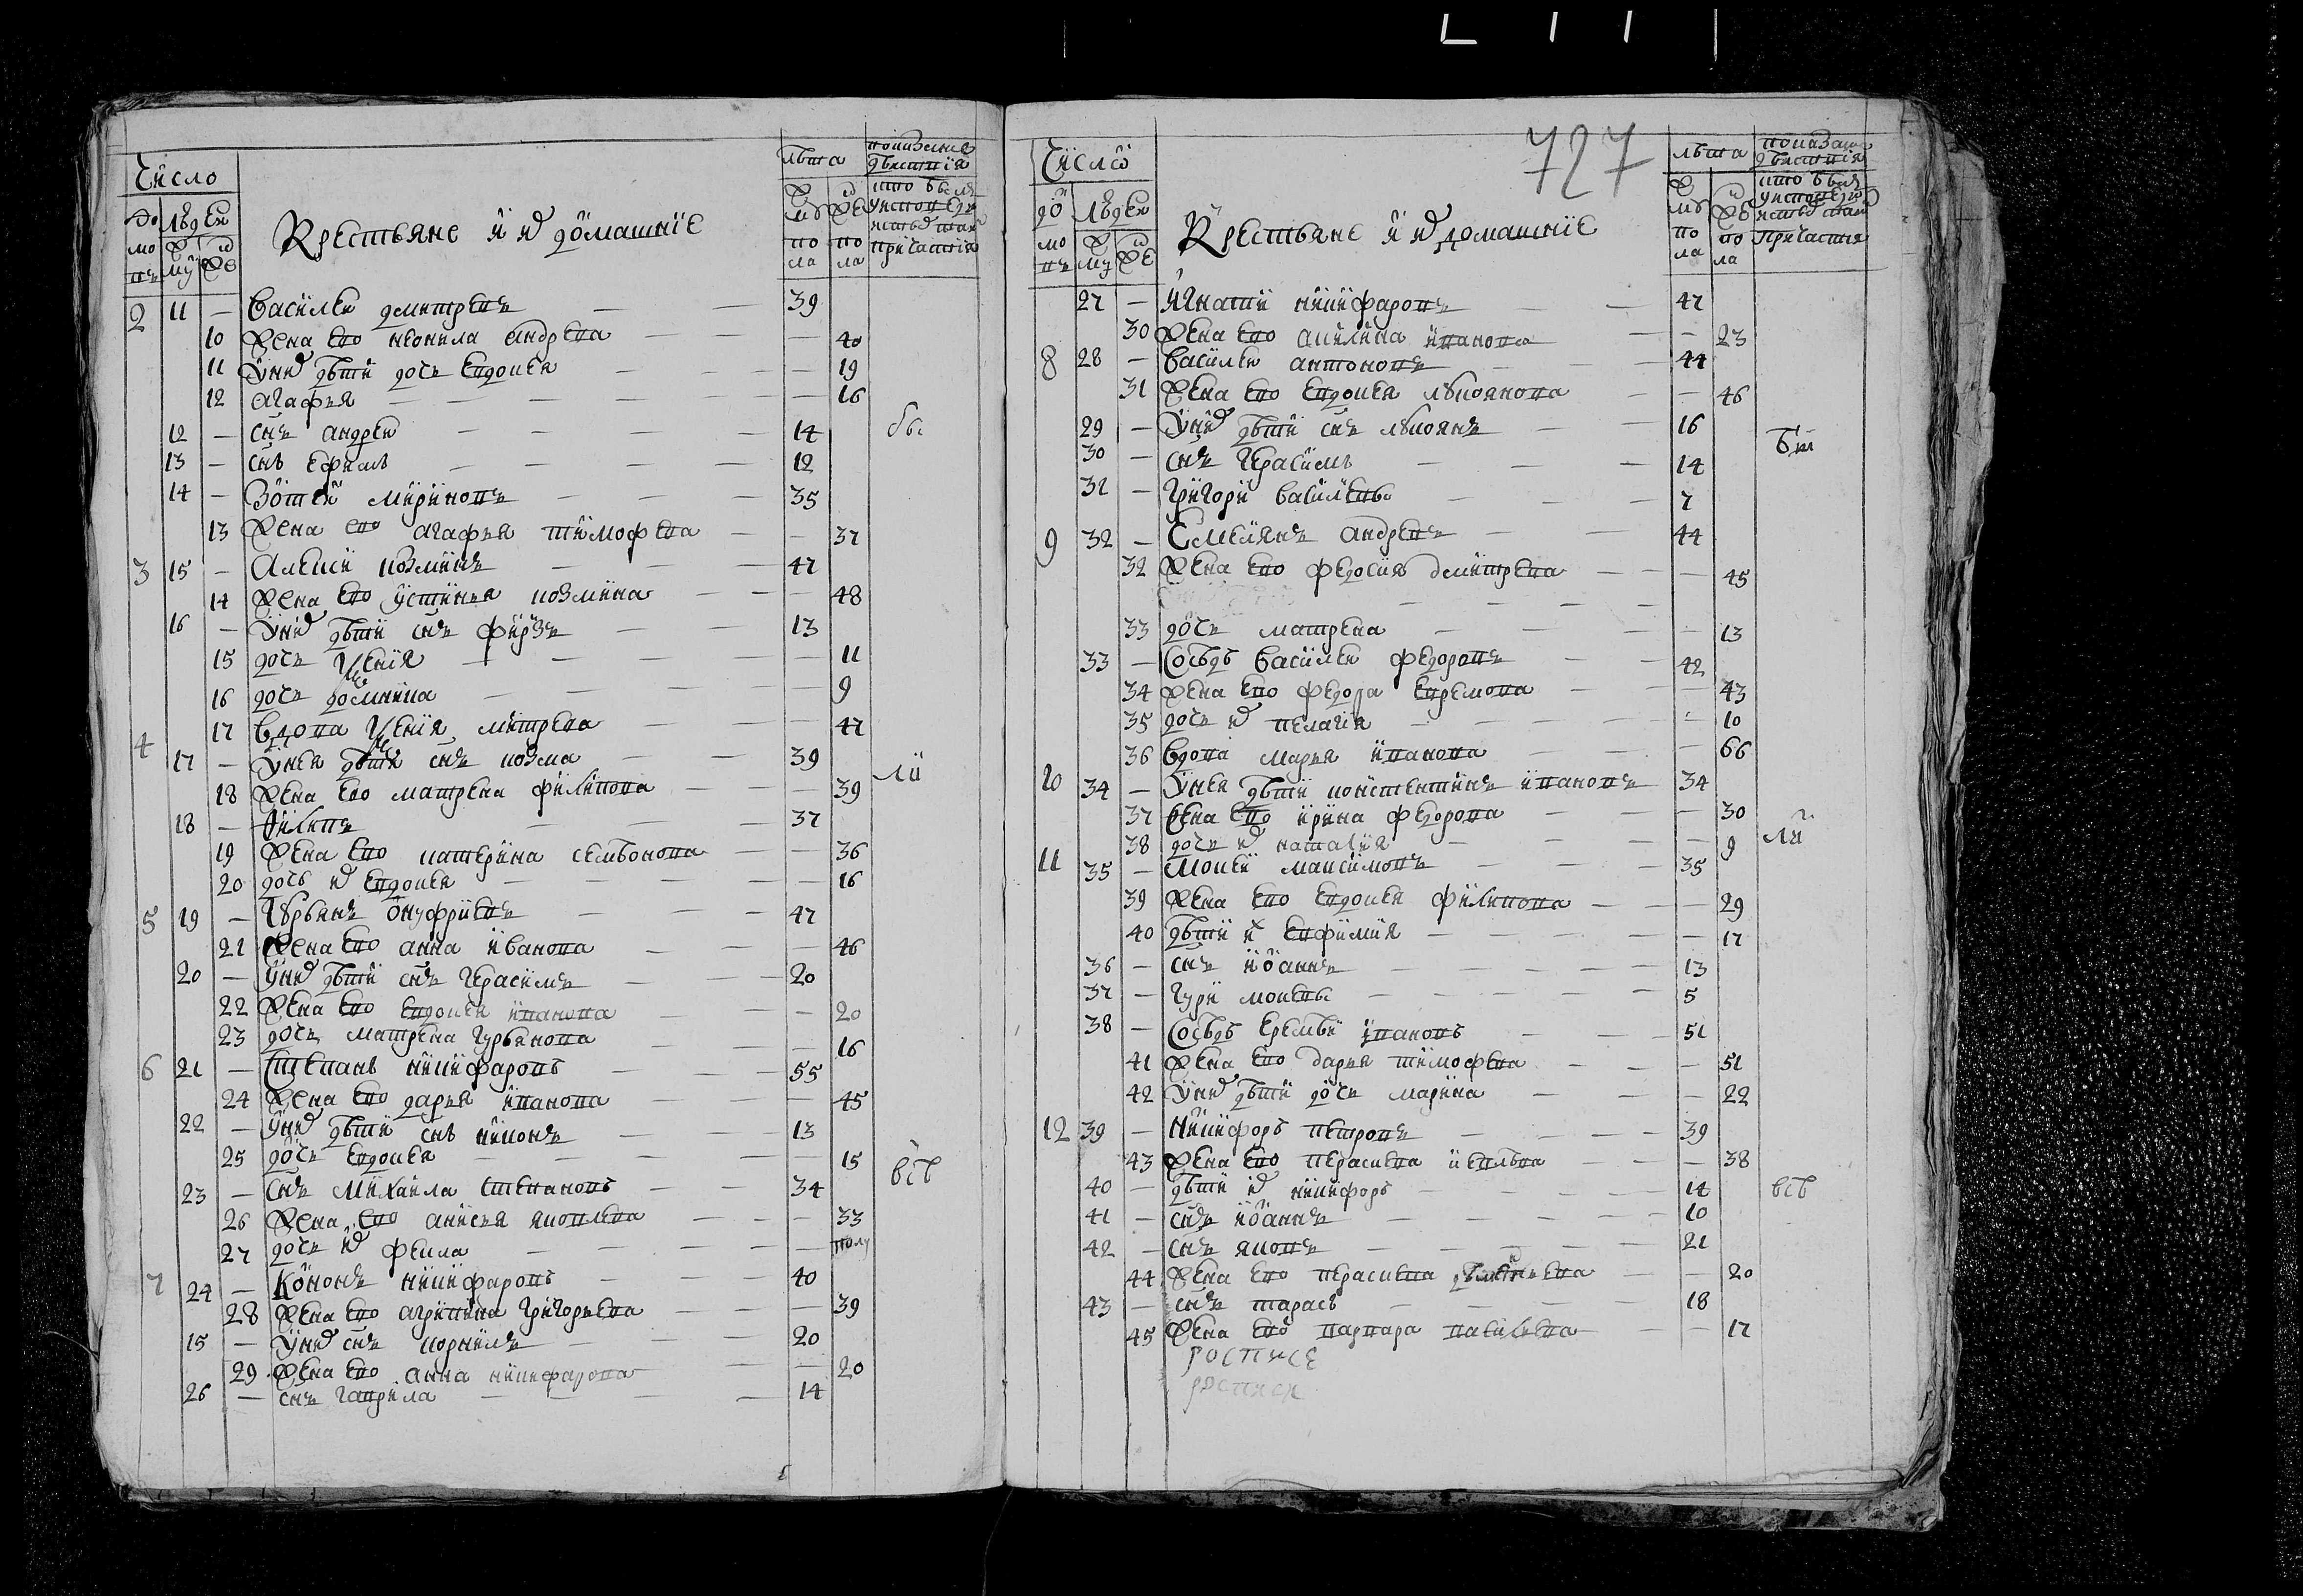 Число
До мо въ людей му же
Крестьяне и их домашние
лѣта муж по ла же по ла
показание дѣйствия кто был у исповеди и святых таин причастия
2 11 — Василей дмитревъ — — 39
10 жена ево неонила андрева — — 40
11 У них дѣти дочь евдокея — — 19
12 агафья — — 16
12 — снъ андрей — — 14 бы
13 — снъ ефимъ — — 12
14 — Зотей мироновъ — — 35
13 жена ево агафья тимофева — — 37
3 15 — Алексй козминъ — — 47
14 жена ево устинья козмина — — 48
16 — У них дѣти снъ фирзъ — — 13
15 дочь ксения — — 11
16 дочь домника — — 9
4 17 вдова ксения митрева — — 47
17 — У нея дѣти снъ козма — — 39 ли
18 жена ево матрена филипова — — 39
18 — филипъ — — 37
19 жена ево катерина семьонова — — 36
20 дочь их евдокея — — 16
5 19 — Гурьянъ онуфриевъ — — 47
21 жена ево анна иванова — — 46
20 — У них дѣти снъ герасимъ — — 20
22 жена ево евдокея иванова — — 20
23 дочь матрена гурьянова — — 16
6 21 — Степанъ никифаровъ — — 55
24 жена ево дарья иванова — — 45
22 — У них дѣти снъ никонъ — — 13
25 дочь евдокея — — 15
23 — снъ михаила степановъ — — 34 всѣ
26 жена ево анисья яковлева — — 33
27 дочь их фекла — — полу
7 24 — Кононъ никифаровъ — — 40
28 жена ево агрипина григорьева — — 39
15 — У них снъ корнилъ — — 20
29 жена ево анна никифарова — — 20
26 — снъ гаврила — — 14
727
Число
до мо въ людей му же
Крестьяне и их домашние
лѣта муж по ла же по ла
показание дѣйствия кто был у исповеди и святых таин причастия
27 — Игнатий никифаровъ — — 47
30 жена ево акилина иванова — — 23
8 28 — Василей антоновъ — — 44
31 жена ево евдокея лукоянова — — 46
29 — У них дѣти снъ лукоянъ — — 16 бы
30 — снъ герасимъ — — 14
31 — григори василевъ — — 7
9 32 — Емелянъ андревъ — — 44
32 жена ево федосия дмитрева — — 45
33 дочь матрена — — 13
33 — Сосѣдъ василей федоровъ — — 42
34 жена ево федора ефремова — — 43
35 дочь их пелагия — — 10
36 вдова марья иванова — — 66
10 34 — У нея дѣти констентинъ ивановъ 34
37 жена ево ирина федорова — — 30
38 дочь их наталия — — 9 ли
11 35 — Мокей максимовъ — — 35
39 жена ево евдокея филипова — — 29
40 дѣти их евфимия — — 17
36 — снъ иоаннъ — — 13
37 — гури мокевъ — — 5
38 — Сосѣдъ еремѣй ивановъ — — 51
41 жена ево дарья тимофева — — 51
42 У них дѣти дочь марина — — 22
12 39 — Никифоръ петровъ — — 39
43 жена ево пераскева иевлева — — 38
40 — дѣти их никифоръ — — 14 всѣ
41 — снъ иоаннъ — — 10
42 — снъ яковъ — — 21
44 жена ево пераскева — — 20
43 — снъ тарасъ — — 18
45 жена ево варвара василева — — 17
росписе
росписи